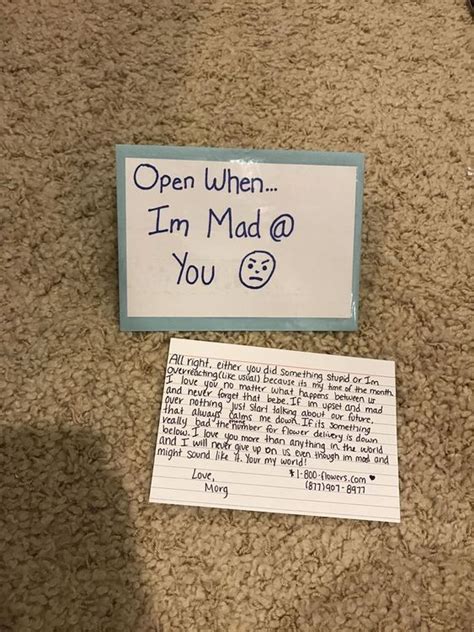 Open When...
Im Mad @
You
All right, either you did something stupid or Im
overreacting (like usual) because its my time of the month.
I love you no matter what happens between us
and never forget that bebe. If im upset and mad
over nothing just start talking about our future,
that always calms me down. If its something
really bad the number for flower delivery is down
below. I love you more than anything in the world
and I will never give up on us even though im mad and
might sound like it. Your my world!
Love,
Morg
1-800-flowers.com
(877)907-8977